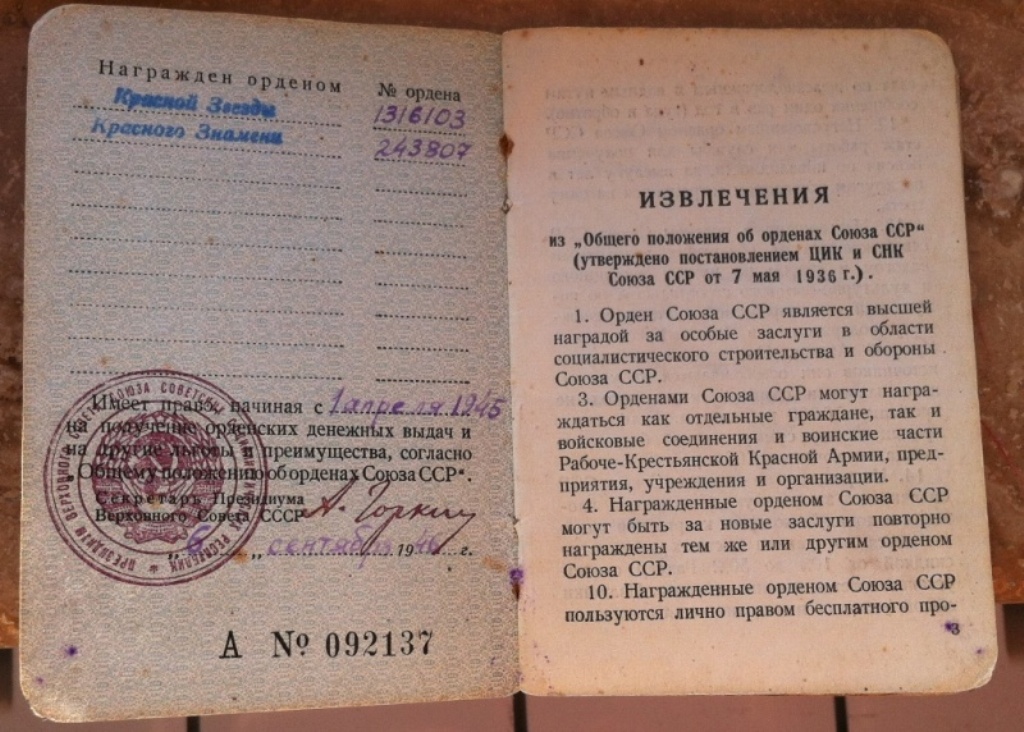 Награжден орденом № ордена
Красной Звезды 1316103
Красного Знамени 243807
Имеет право, начиная с 1 апреля 1945
на получение орденских денежных выдач и
на другие льготы и преимущества, согласно
„Общему положению об орденах Союза ССР“.
Секретарь Президиума
Верховного Совета СССР А. Горкин
„6„ сентября 1946 г.
А № 092137
ИЗВЛЕЧЕНИЯ
из „Общего положения об орденах Союза ССР“
(утверждено постановлением ЦИК и СНК
Союза ССР от 7 мая 1936 г.).
1. Орден Союза ССР является высшей
наградой за особые заслуги в области
социалистического строительства и обороны
Союза ССР.
3. Орденами Союза ССР могут награ-
ждаться как отдельные граждане, так и
войсковые соединения и воинские части
Рабоче-Крестьянской Красной Армии, пред-
приятия, учреждения и организации.
4. Награжденные орденом Союза ССР
могут быть за новые заслуги повторно
награждены тем же или другим орденом
Союза ССР.
10. Награжденные орденом Союза ССР
пользуются лично правом бесплатного про-
3